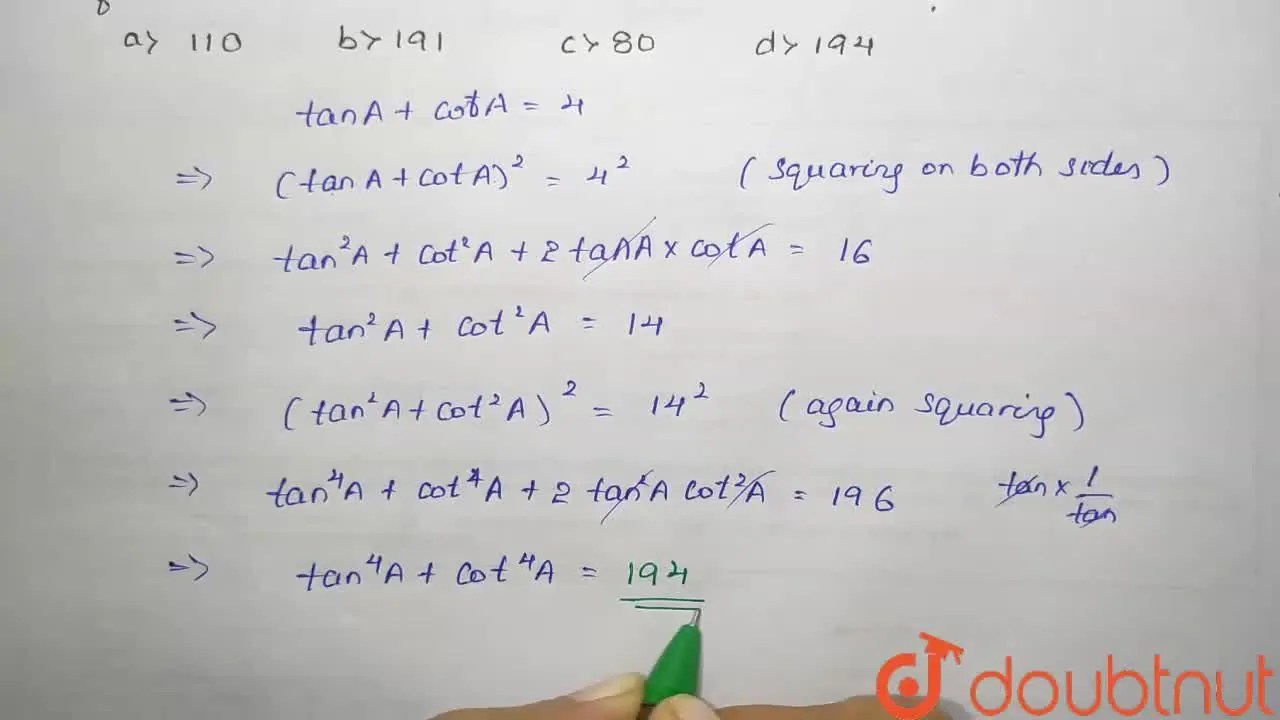 a> 110 b> 191 c> 80 d> 194
tanA + cotA = 4
=> (tan A + cot A)² = 4² (squaring on both sides)
=> tan²A + cot²A + 2 tanA x cotA = 16
=> tan²A + cot²A = 14
=> (tan²A + cot²A)² = 14² (again squaring)
=> tan⁴A + cot⁴A + 2 tan²A cot²A = 196 tan x 1/tan
=> tan⁴A + cot⁴A = 194
doubtnut